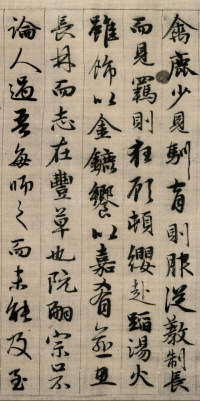 禽鹿少見馴育則服從教制長
而見羈則狂顧頓纓赴蹈湯火
雖飾以金鑣饗以嘉肴愈思
長林而志在豐草也阮嗣宗口不
論人過吾每師之而未能及至